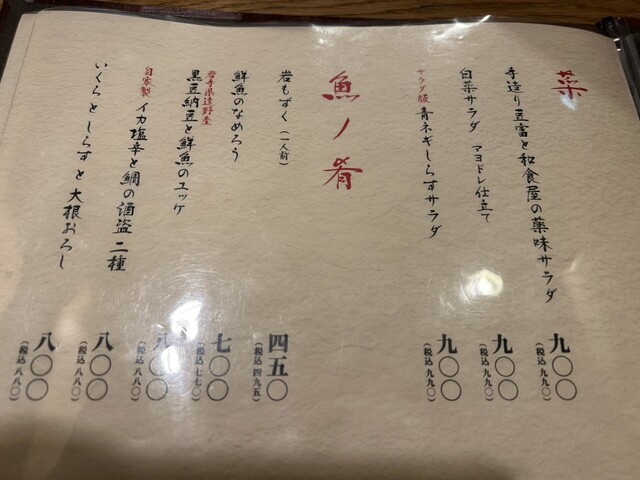 菜
手造り豆富と和食屋の薬味サラダ 九〇〇
(税込 九九〇)
白菜サラダ マヨドレ仕立て 九〇〇
(税込 九九〇)
サラダ版 青ネギしらすサラダ 九〇〇
(税込 九九〇)
魚ノ肴
岩もずく(一人前) 四五〇
(税込 四九五)
鮮魚のなめろう 七〇〇
(税込 七七〇)
岩手県遠野産
黒豆納豆と鮮魚のユッケ 八〇〇
(税込 八八〇)
自家製 イカ塩辛と鯛の酒盗 二種 八〇〇
(税込 八八〇)
いくらとしらすと大根おろし 八〇〇
(税込 八八〇)